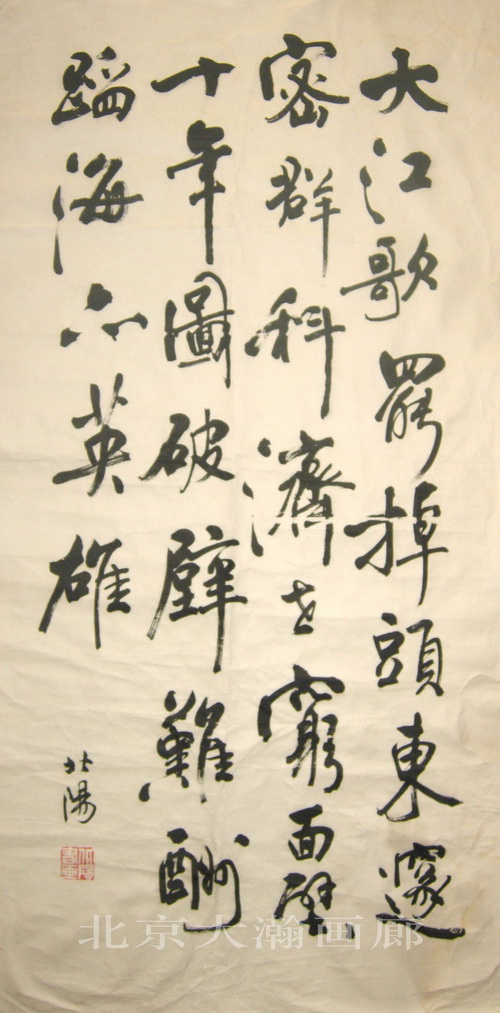 大江歌罷掉頭東邃
密群科濟世窮面壁
十年圖破壁難酬
蹈海亦英雄
北陽
北京大瀚画廊